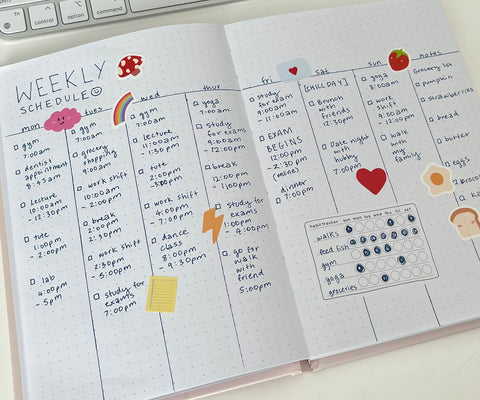 fn
control
option
command
WEEKLY
SCHEDULE
mon
gym
7:00am
dentist
appointment
8:45am
lecture
10:00am
- 12:30pm
tute
1:00pm
- 2:00pm
lab
4:00pm
- 5pm
tues
gym
7:00am
grocery
shopping
9:00am
work shift
10:00am
- 2:00pm
break
2:00pm
- 2:30pm
work shift
2:30pm
- 5:00pm
study for
exams
7:00pm
wed
gym
7:00am
lecture
11:00am
- 1:30pm
tute
2:00pm
work shift
4:00pm
- 7:00pm
dance
class
8:00pm
- 9:30pm
thur
yoga
7:00am
study for
exams
9:00am
- 12:00pm
break
12:00pm
- 1:00pm
study for
exams
1:00pm
go for
walk
with
friend
5:00pm
fri
study
for exam
9:00am
- 11:00am
EXAM
BEGINS
12:00pm
- 2:30pm
(online)
dinner
7:00pm
sat
[CHILL DAY]
Brunch
with
friends
12:30pm
Date night
with
hubby
7:00pm
sun
yoga
8:00am
work
shift
9:00am
- 2:00pm
walk
with
my
family
notes
Grocery list
pumpkin
strawberries
bread
butter
eggs
habit tracker sun mon tue wed thu fri sat
walks
feed fish
gym
yoga
groceries